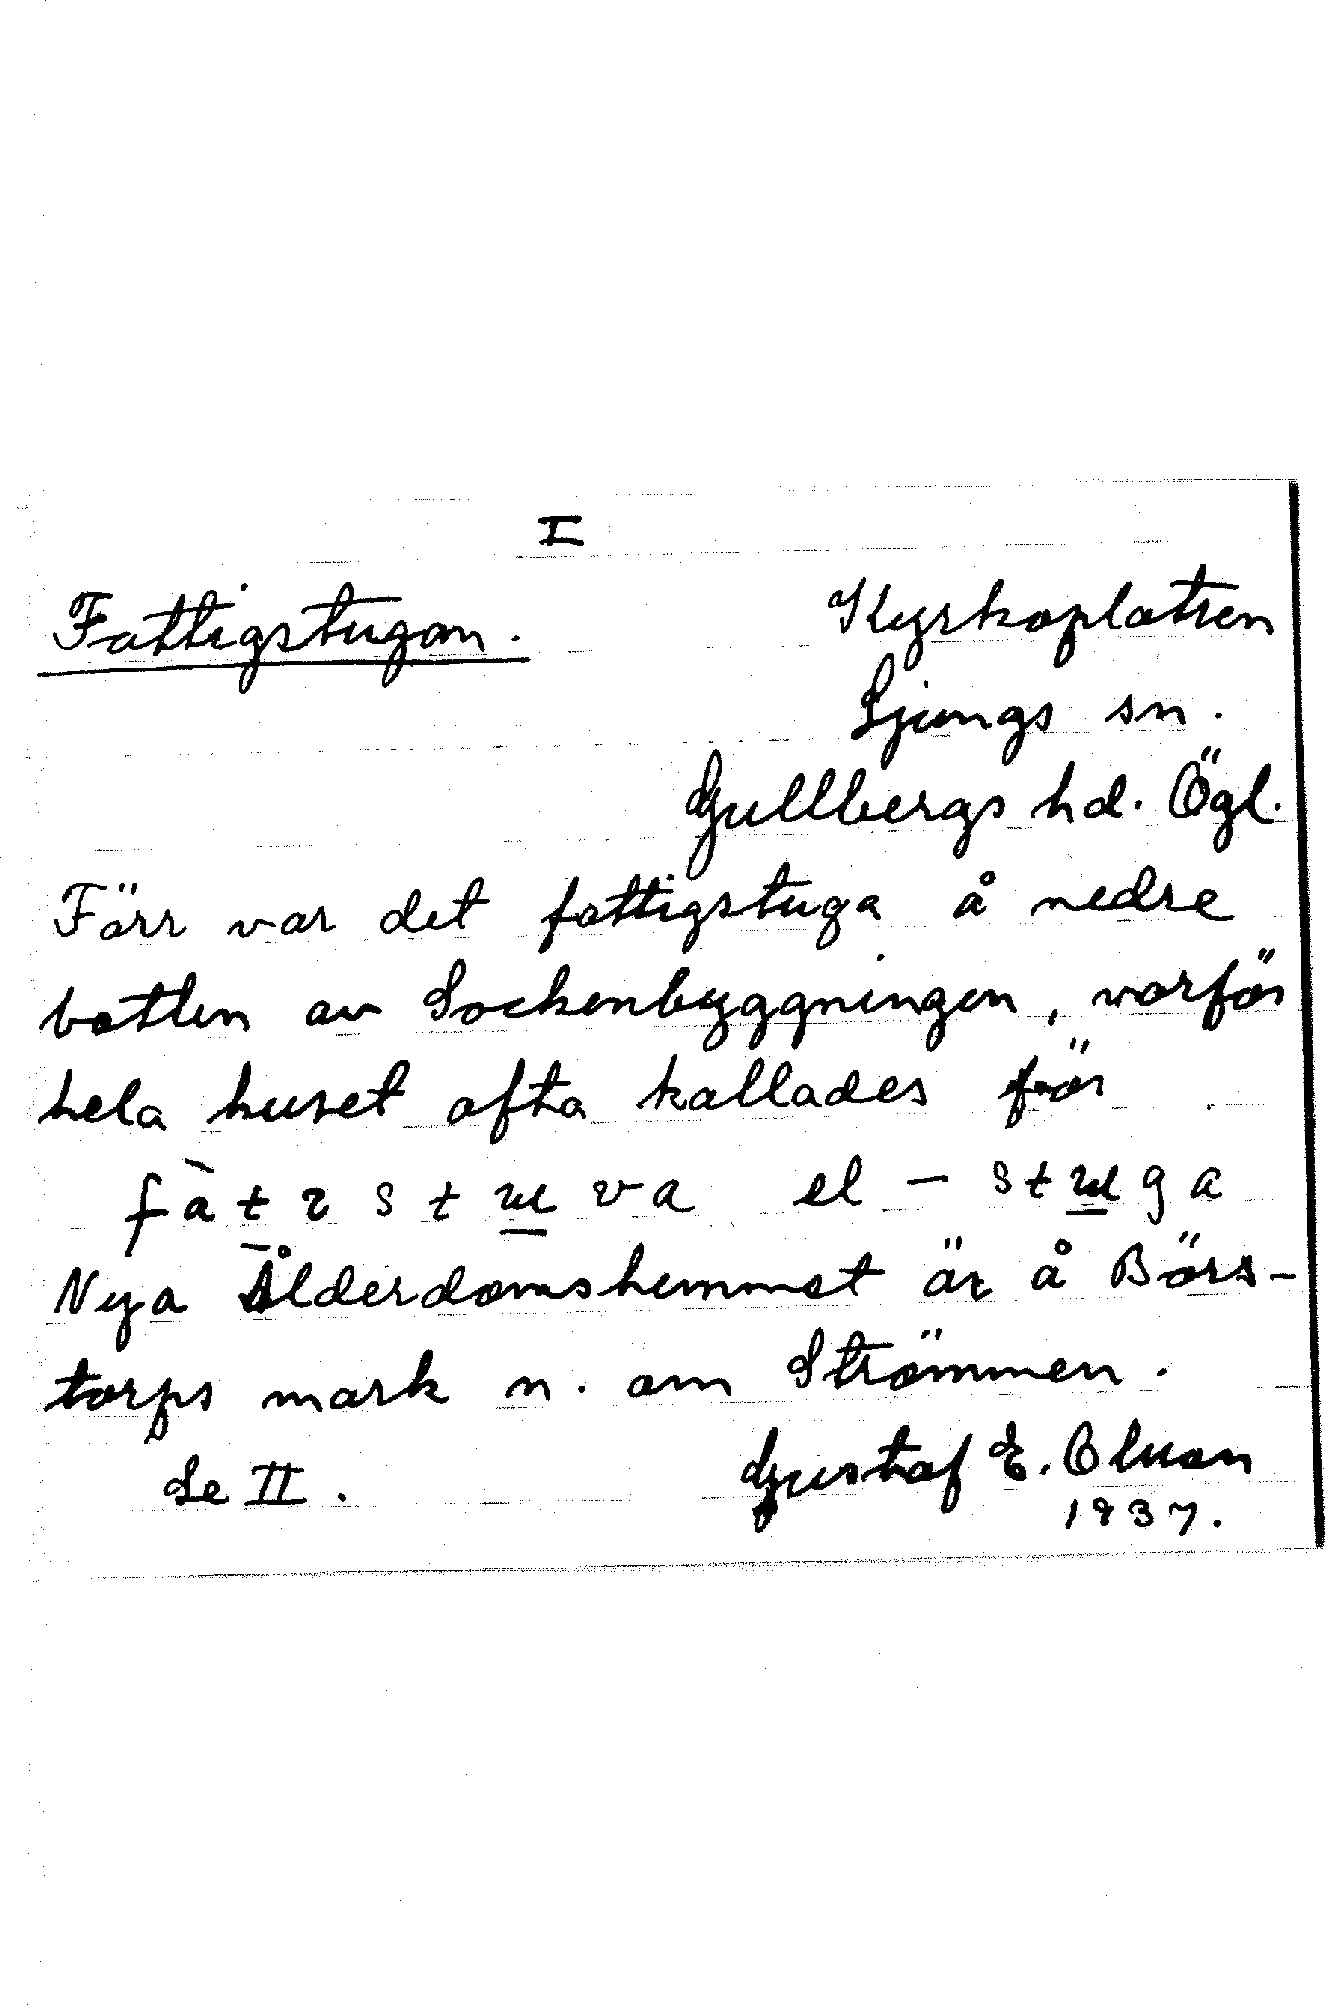 I
Fattigstugan. Kyrkoplatsen
Ljungs sn.
Gullbergs hd. Ögl.
Förr var det fattigstuga å nedre
botten av Sockenbyggningen, varför
hela huset ofta kallades för
fàtɪstuva el - stuga
Nya Ålderdomshemmet är å Börs-
torps mark n. om Strömmen.
Se II. Gustaf E. Olsson
1937.